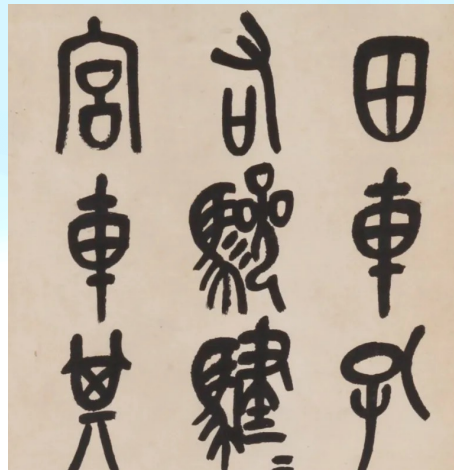 田車孔
右驂騝=
宮車其